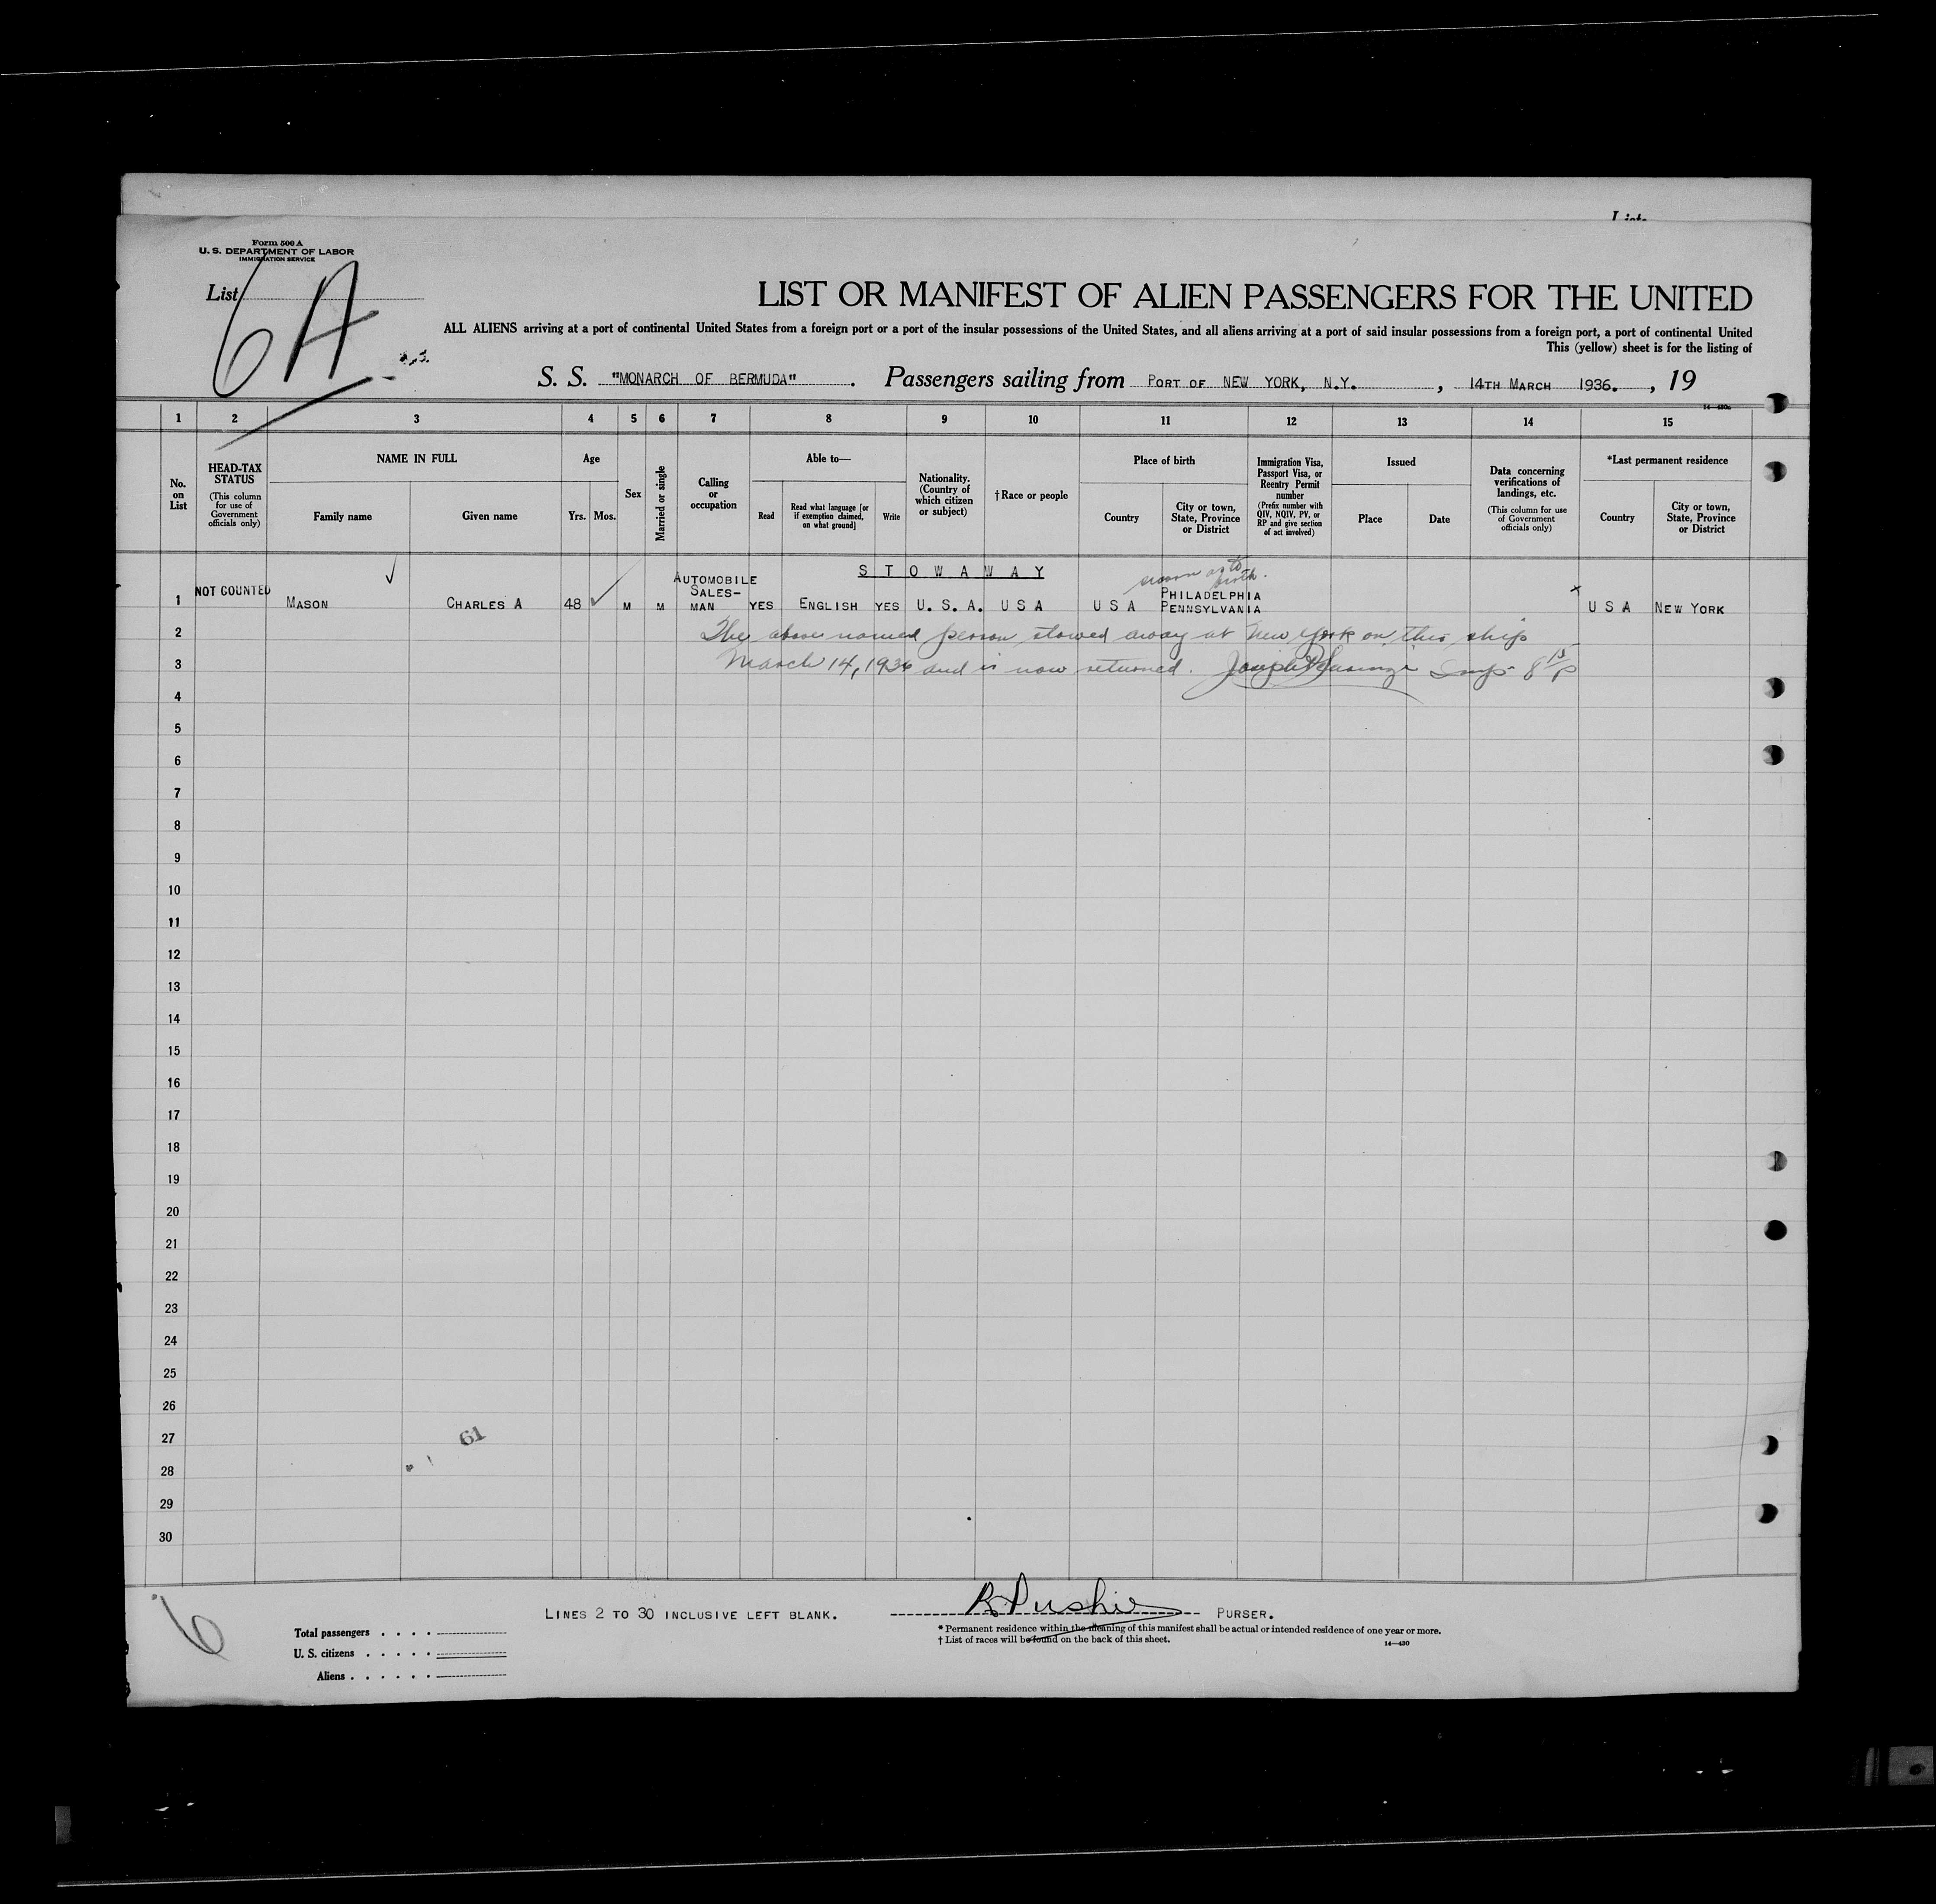 Form 500 A
U. S. DEPARTMENT OF LABOR
IMMIGRATION SERVICE
List 6A
LIST OR MANIFEST OF ALIEN PASSENGERS FOR THE UNITED
ALL ALIENS arriving at a port of continental United States from a foreign port or a port of the insular possessions of the United States, and all aliens arriving at a port of said insular possessions from a foreign port, a port of continental United
This (yellow) sheet is for the listing of
S. S. "MONARCH OF BERMUDA". Passengers sailing from PORT OF NEW YORK, N.Y., 14TH MARCH 1936., 19
14—430a
1 2 3 4 5 6 7 8 9 10 11 12 13 14 15
No. on List
HEAD-TAX STATUS (This column for use of Government officials only)
NAME IN FULL
Family name
Given name
Age
Yrs. Mos.
Sex
Married or single
Calling or occupation
Able to—
Read
Read what language [or if exemption claimed, on what ground]
Write
Nationality. (Country of which citizen or subject)
†Race or people
Place of birth
Country
City or town, State, Province or District
Immigration Visa, Passport Visa, or Reentry Permit number (Prefix number with QIV, NQIV, PV, or RP and give section of act involved)
Issued
Place
Date
Data concerning verifications of landings, etc. (This column for use of Government officials only)
*Last permanent residence
Country
City or town, State, Province or District
STOWAWAY
sworn as to birth.
1 NOT COUNTED MASON CHARLES A 48 M M AUTOMOBILE SALES-MAN YES ENGLISH YES U. S. A. USA USA PHILADELPHIA PENNSYLVANIA x USA NEW YORK
2 The above named person stowed away at New York on this ship
3 March 14, 1936 and is now returned. Joseph Insp
4
5
6
7
8
9
10
11
12
13
14
15
16
17
18
19
20
21
22
23
24
25
26
27
61
28
29
30
6
LINES 2 TO 30 INCLUSIVE LEFT BLANK.
R Pushie PURSER.
Total passengers . . . .
U. S. citizens . . . . .
Aliens . . . . . .
* Permanent residence within the meaning of this manifest shall be actual or intended residence of one year or more.
† List of races will be found on the back of this sheet.
14—430